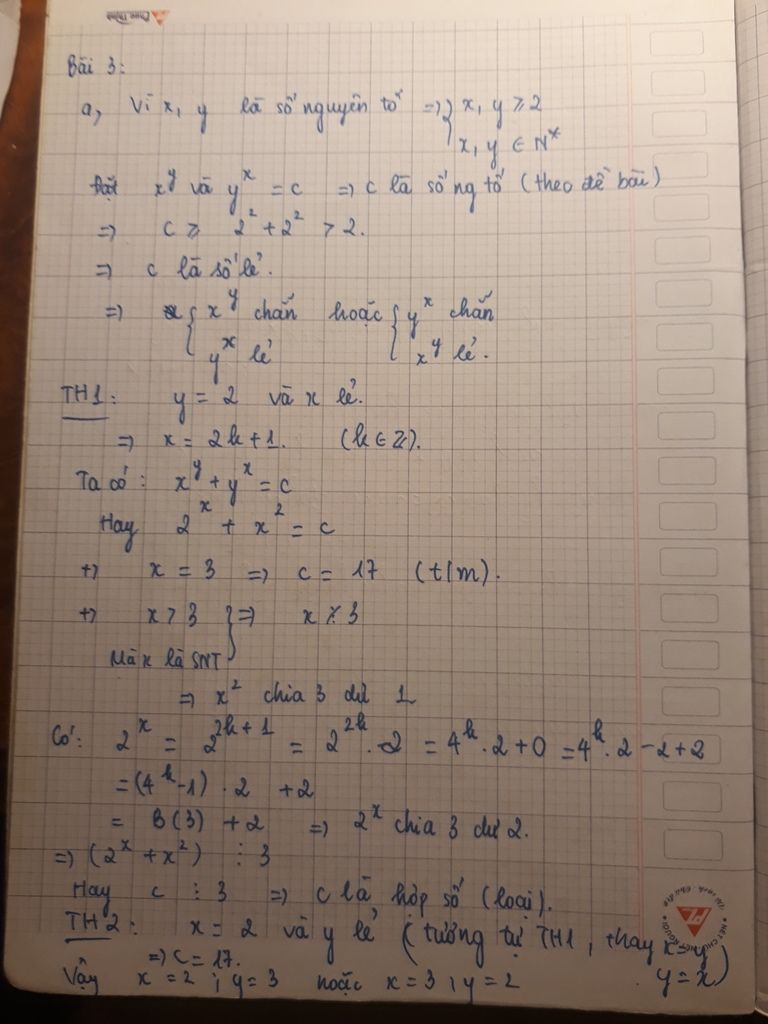 Bài 3:
a, Vì x, y là số nguyên tố => { x, y ⩾ 2
x, y ∈ N*
Đặt x^y và y^x = c => c là số ng tố (theo đề bài)
=> c ⩾ 2^2 + 2^2 > 2.
=> c là số lẻ.
=> { x^y chẵn hoặc { y^x chẵn
y^x lẻ x^y lẻ.
TH1: y = 2 và x lẻ.
=> x = 2k+1. (k ∈ Z).
Ta có: x^y + y^x = c
Hay 2^x + x^2 = c
+) x = 3 => c = 17 (t/m).
+) x > 3 } => x ⋮̸ 3
Mà x là SNT
=> x^2 chia 3 dư 1
Có: 2^x = 2^{2k+1} = 2^{2k} . 2 = 4^k . 2 + 0 = 4^k . 2 - 2 + 2
= (4^k - 1) . 2 + 2
= B(3) + 2 => 2^x chia 3 dư 2.
=> (2^x + x^2) ⋮ 3
Hay c ⋮ 3 => c là hợp số (loại).
TH2: x = 2 và y lẻ (tương tự TH1, thay x = y
y = x)
=> c = 17.
Vậy x = 2 ; y = 3 hoặc x = 3 ; y = 2